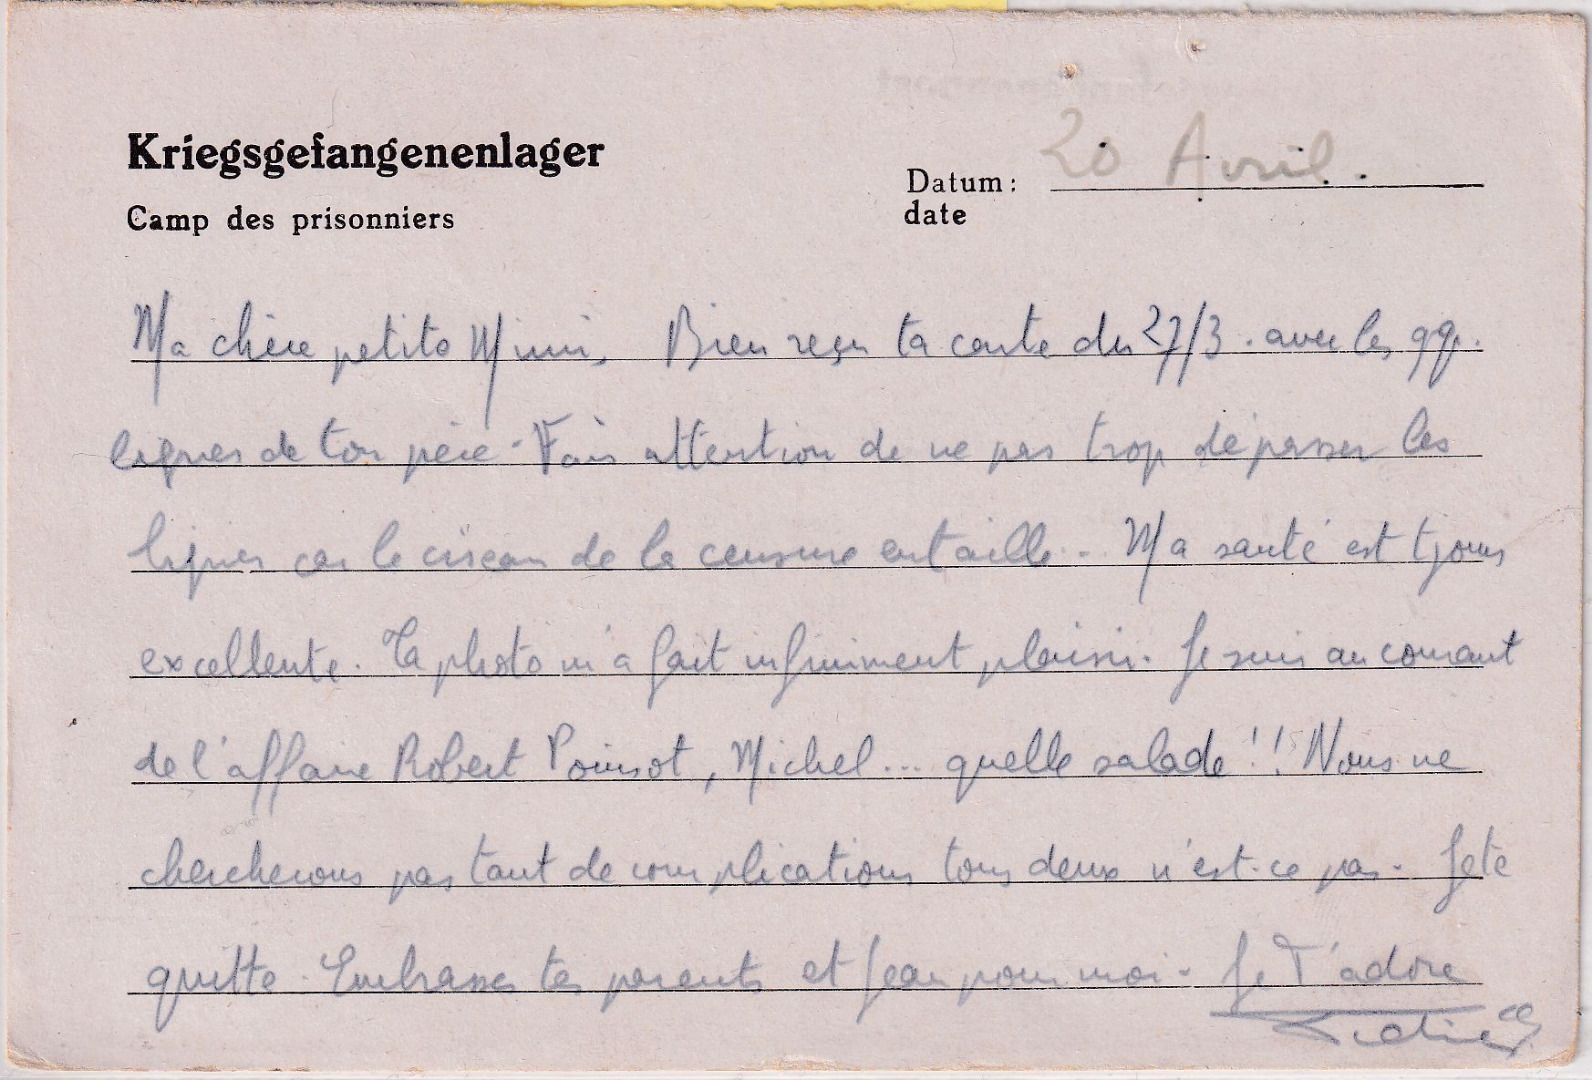 Kriegsgefangenenlager
Camp des prisonniers
Datum: 20 Avril.
date
Ma chère petite Mimi, Bien reçu ta carte du 27/3. avec les qq.
lignes de ton père. Fais attention de ne pas trop dépasser les
lignes car le ciseau de la censure entaille.. Ma santé est tjours
excellente. Ta photo m'a fait infiniment plaisir. Je suis au courant
de l'affaire Robert Poinsot, Michel... quelle salade!! Nous ne
chercherons pas tant de complications tous deux n'est-ce pas. Je te
quitte. Embrasse tes parents et Jean pour moi. Je T'adore